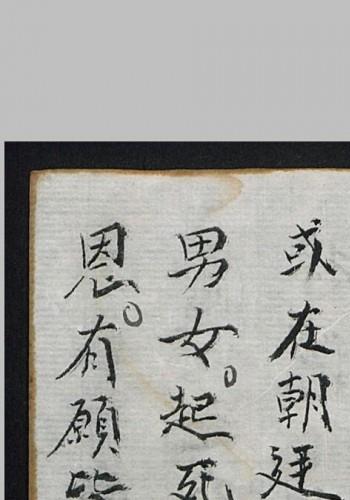 或在朝廷
男女。起死
恩。有願皆